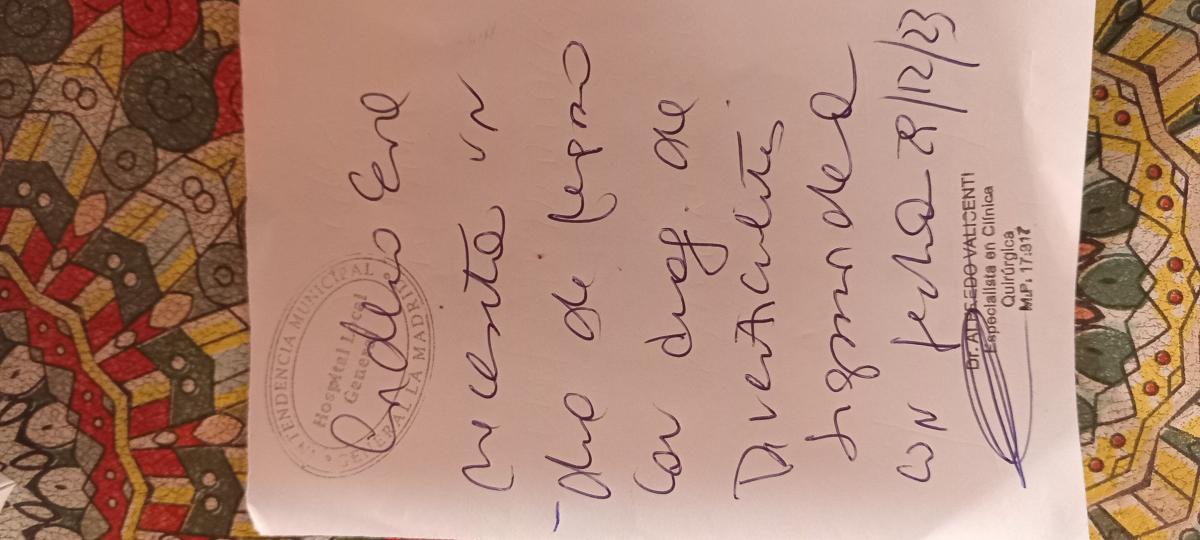 INTENDENCIA MUNICIPAL
Hospital Local
General
GENERAL LA MADRID
necesita un
dia de reposo
con diag. de
Diverticulitis
sigmoidea
con fecha 29/12/23
Dr. ALFREDO VALICENTI
Especialista en Clínica
Quirúrgica
M.P.: 17.317